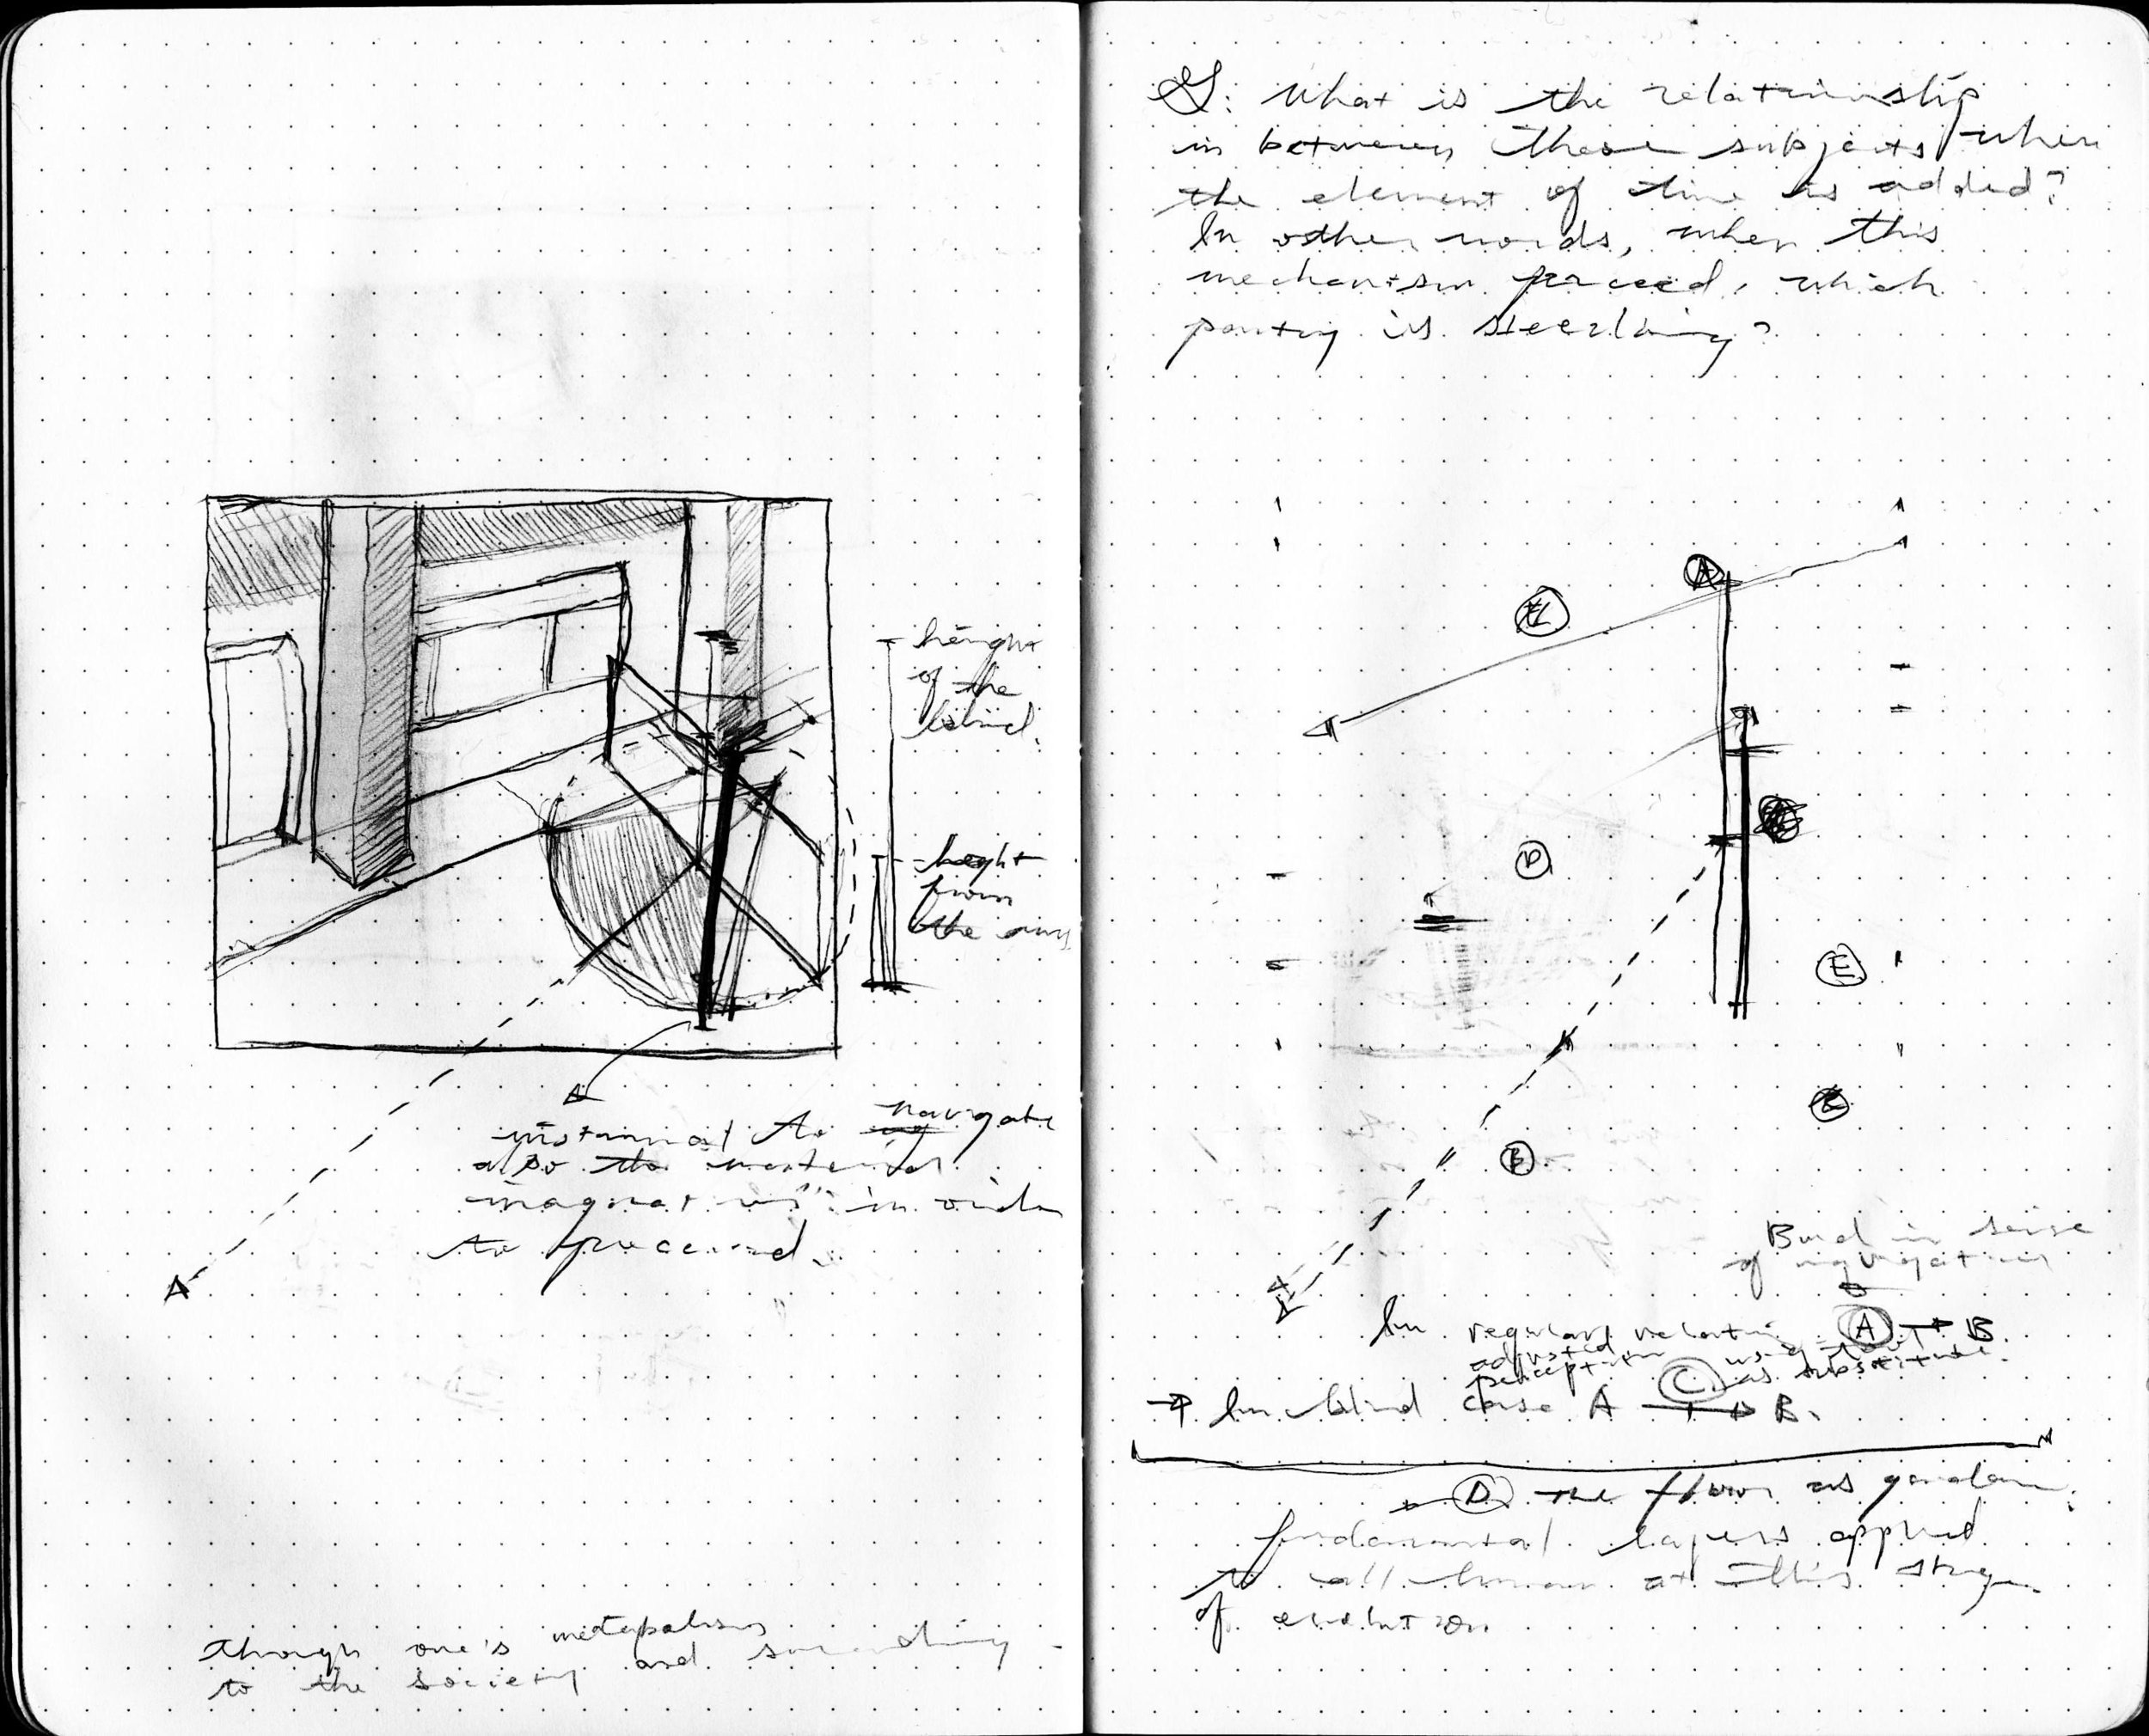 height
of the
blind.
height
from
the
to navigate
also the material
in order
to proceed.
though one's metabolism
and surrounding
to the society
Q: What is the relationship
in between these subjects when
the element of time is added?
In other words, when this
mechanism proceed, which
party is
A
D
E
B
sense
of navigation
In regular A → B.
adjusted
perception using
C as substitute.
→ In blind case A → B.
D the floor as
fundamental layers applied
to all human at this stage
of evolution